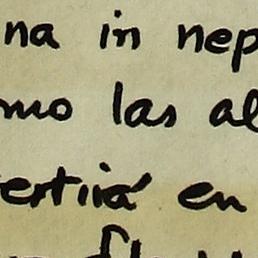 na in nep
mo las al
ertirá en